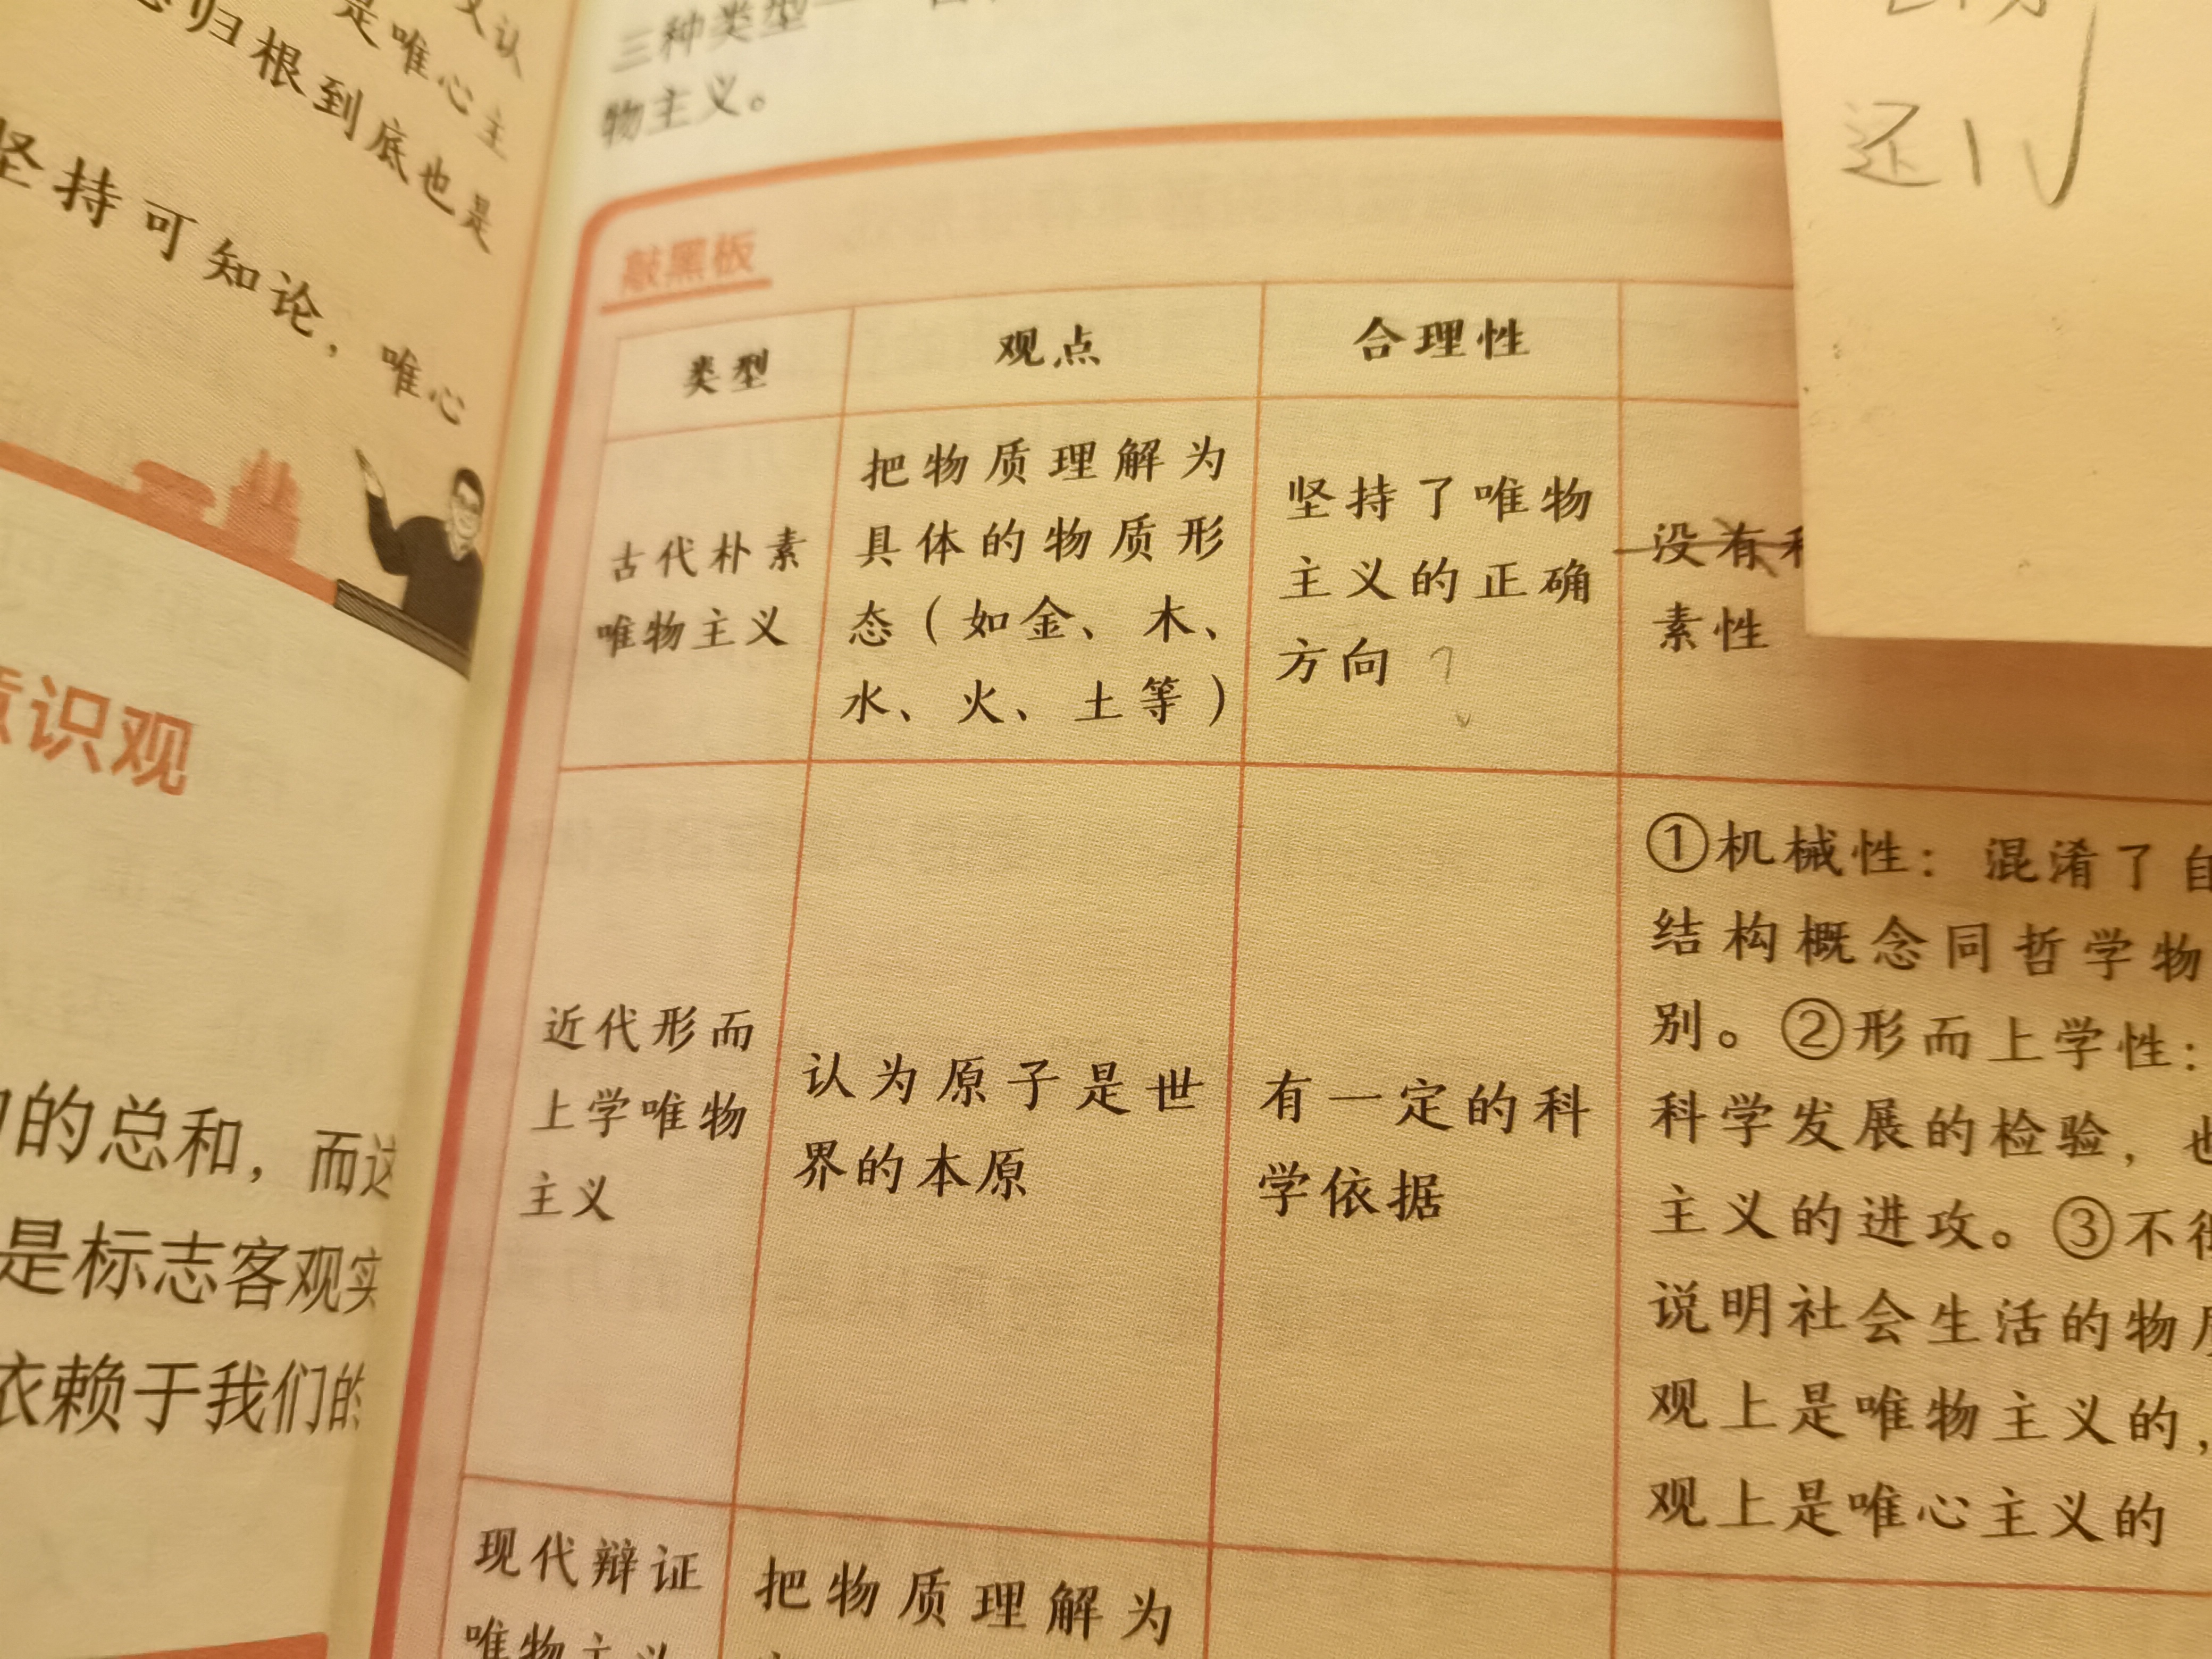 是唯心主
归根到底也是
坚持可知论，唯心
意识观
的总和，而这
是标志客观实
依赖于我们的
三种类型
物主义。
敲黑板
类型
观点
合理性
古代朴素
唯物主义
把物质理解为
具体的物质形
态（如金、木、
水、火、土等）
坚持了唯物
主义的正确
方向？
没有
素性
近代形而
上学唯物
主义
认为原子是世
界的本原
有一定的科
学依据
①机械性：混淆了自
结构概念同哲学物
别。②形而上学性：
科学发展的检验，也
主义的进攻。③不彻
说明社会生活的物质
观上是唯物主义的，
观上是唯心主义的
现代辩证
唯物主义
把物质理解为
还